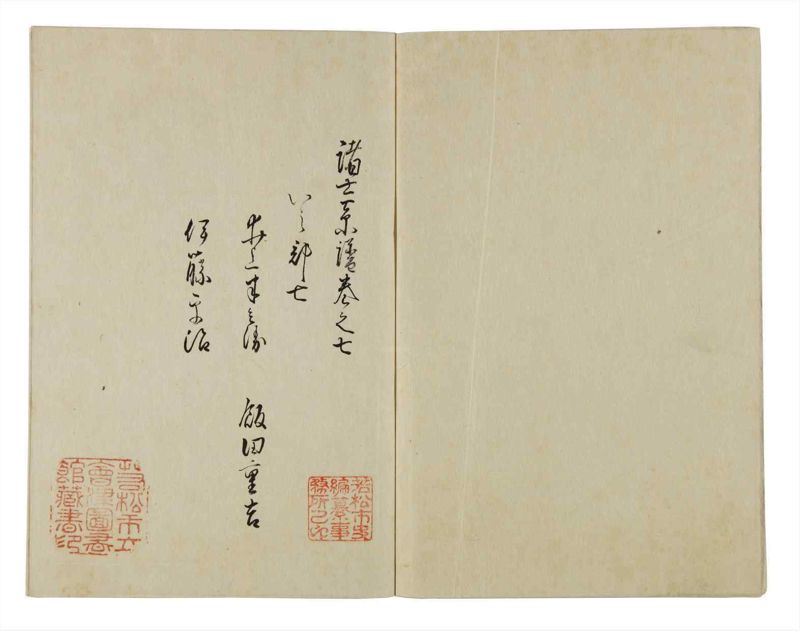 諸士系譜巻之七
いノ部七
飯田重吉
伊藤平治
若松市史
編纂事
務所之印
若松市立
會津圖書
館藏書印